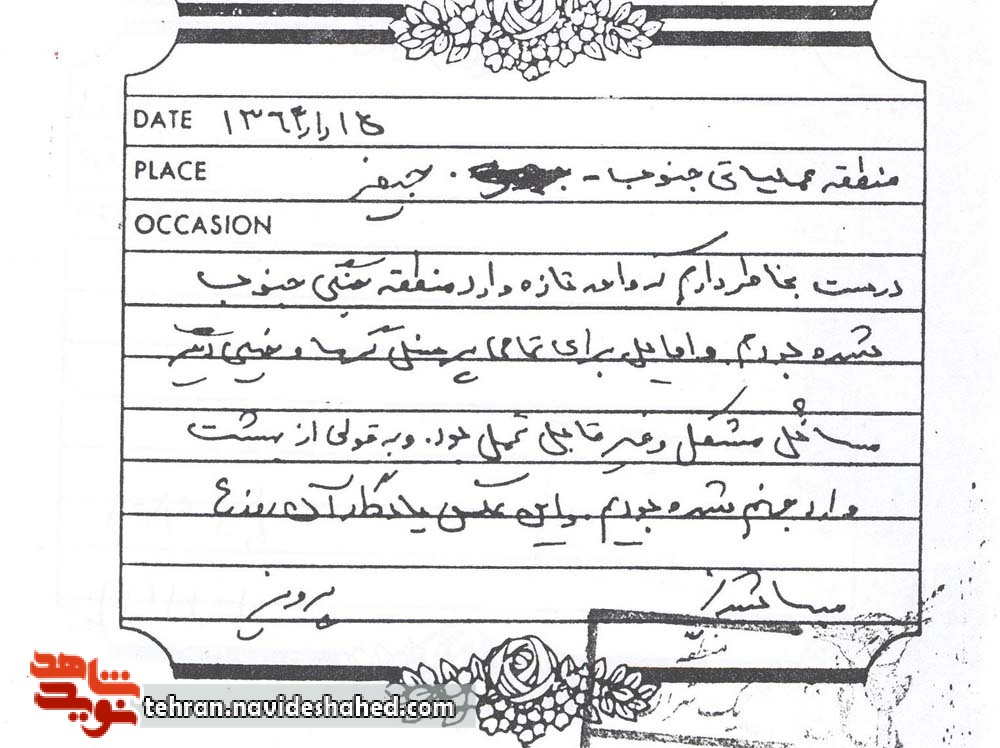 DATE ۱۳۶۴/۱/۱۵
PLACE منطقه عملیاتی جنوب - جفیر
OCCASION
درست بخاطر دارم که واحد تازه وارد منطقه جنگی جنوب
شده بودم و اوایل برای تمامی پرسنل گرما و خیلی دیگر
مسائل مشکل و غیر قابل تحمل بود. و به قولی از بهشت
وارد جهنم شده بودیم. و این عکس یادگار آن روزها
میباشد پرویز
شاهد
نوید
tehran.navideshahed.com